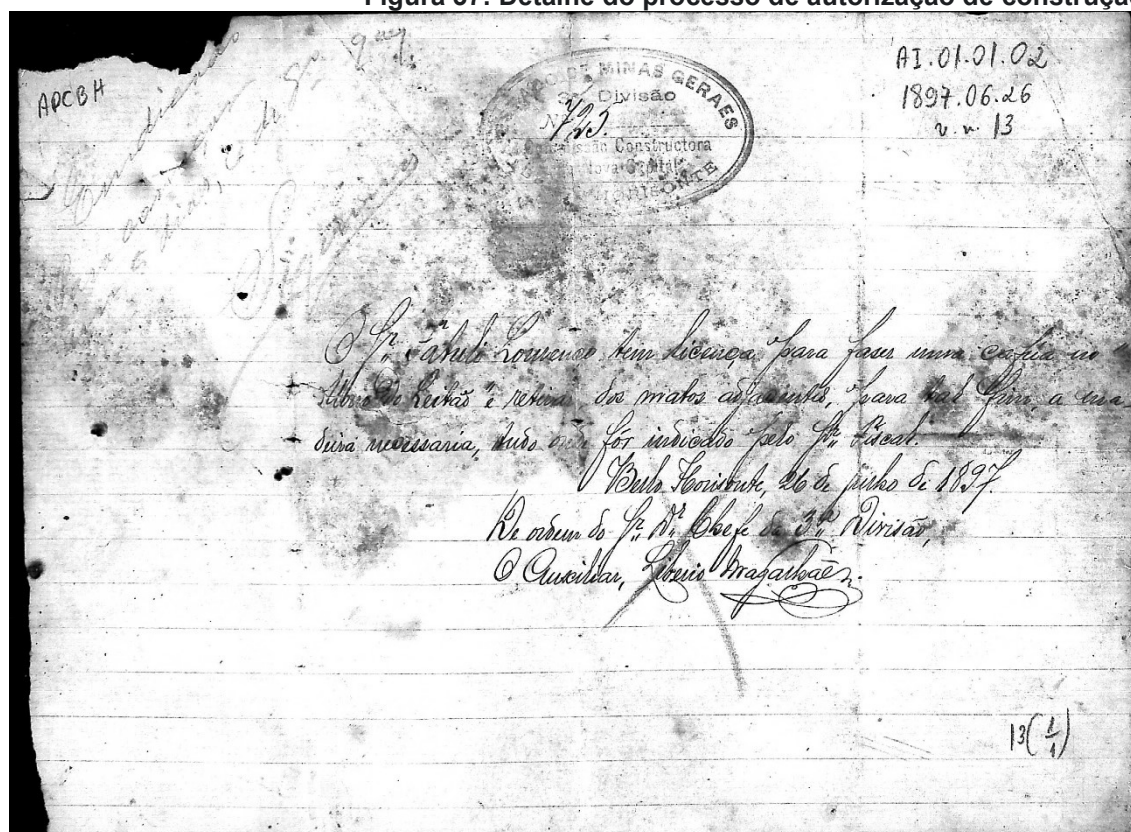 Figura 37: Detalhe do processo de autorização de construção
APCBH
AI.01.01.02
1897.06.26
13
MINAS GERAES
3ª Divisão
Nº 725.
Constructora
Nova Capital
O Sr. Lourenço tem licença para fazer uma cafua no
Leitão" e retirar dos matos adjacentes, para tal fim, a ma
deira necessaria, tudo onde fôr indicado pelo Sr. Fiscal.
Bello Horisonte, 26 de junho de 1897
De ordem do Sr. Dr. Chefe da 3ª Divisão,
O Auxiliar, Liberio Magalhães.
13(1/1)